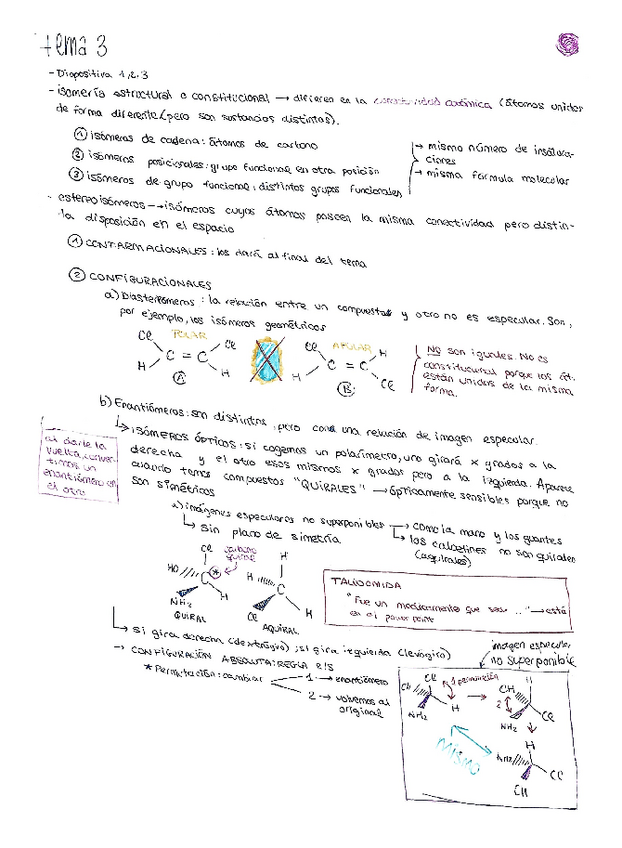 tema 3
- Diapositiva 1, 2, 3
- isomería estructural o constitucional → difieren en la conectividad atómica (átomos unidos
de forma diferente (pero son sustancias distintas).
① isómeros de cadena: átomos de carbono
② isómeros posicionales: grupo funcional en otra posición
③ isómeros de grupo funcional, distintos grupos funcionales
→ mismo número de insatura-
ciones
→ misma fórmula molecular
- estereoisómeros → isómeros cuyos átomos poseen la misma conectividad pero distin-
ta disposición en el espacio
① CONFARMACIONALES: los dará al final del tema
② CONFIGURACIONALES
a) Diasterómeros: la relación entre un compuesto y otro no es especular. Son,
por ejemplo, los isómeros geométricos
Cl POLAR Cl
C = C
H H
A
Cl APOLAR H
C = C
H Cl
B
NO son iguales. No es
constitucional porque los át.
están unidos de la misma
forma.
b) Enantiómeros: son distintos, pero con una relación de imagen especular.
↳ ISÓMEROS ÓPTICOS: si cogemos un polarímetro, uno girará x grados a la
derecha y el otro esos mismos x grados pero a la izquierda. Aparece
cuando temos compuestos "QUIRALES" → ópticamente sensibles porque no
son simétricos
al darle la
vuelta conver-
timos un
enantiómero en
el otro
imágenes especulares no superponibles → como la mano y los guantes
↳ los calcetines no son quirales
(aquirales)
↳ sin plano de simetría
Cl
carbono
quiral
HO C *
NH₂ H
QUIRAL
H
H C
Cl
AQUIRAL
TALIDOMIDA
"Fue un medicamento que se ..." → está
en el power point
↳ si gira derecha (dextrógiro); si gira izquierda (levógiro)
→ CONFIGURACIÓN ABSOLUTA: REGLA R/S
* Permutación: cambiar
1 → enantiómero
2 → volvemos al
original
imagen especular
no superponible
Cl
1 permutación
OH H
NH₂
H
OH
2
NH₂ Cl
MISMO
H
NH₂
Cl
OH